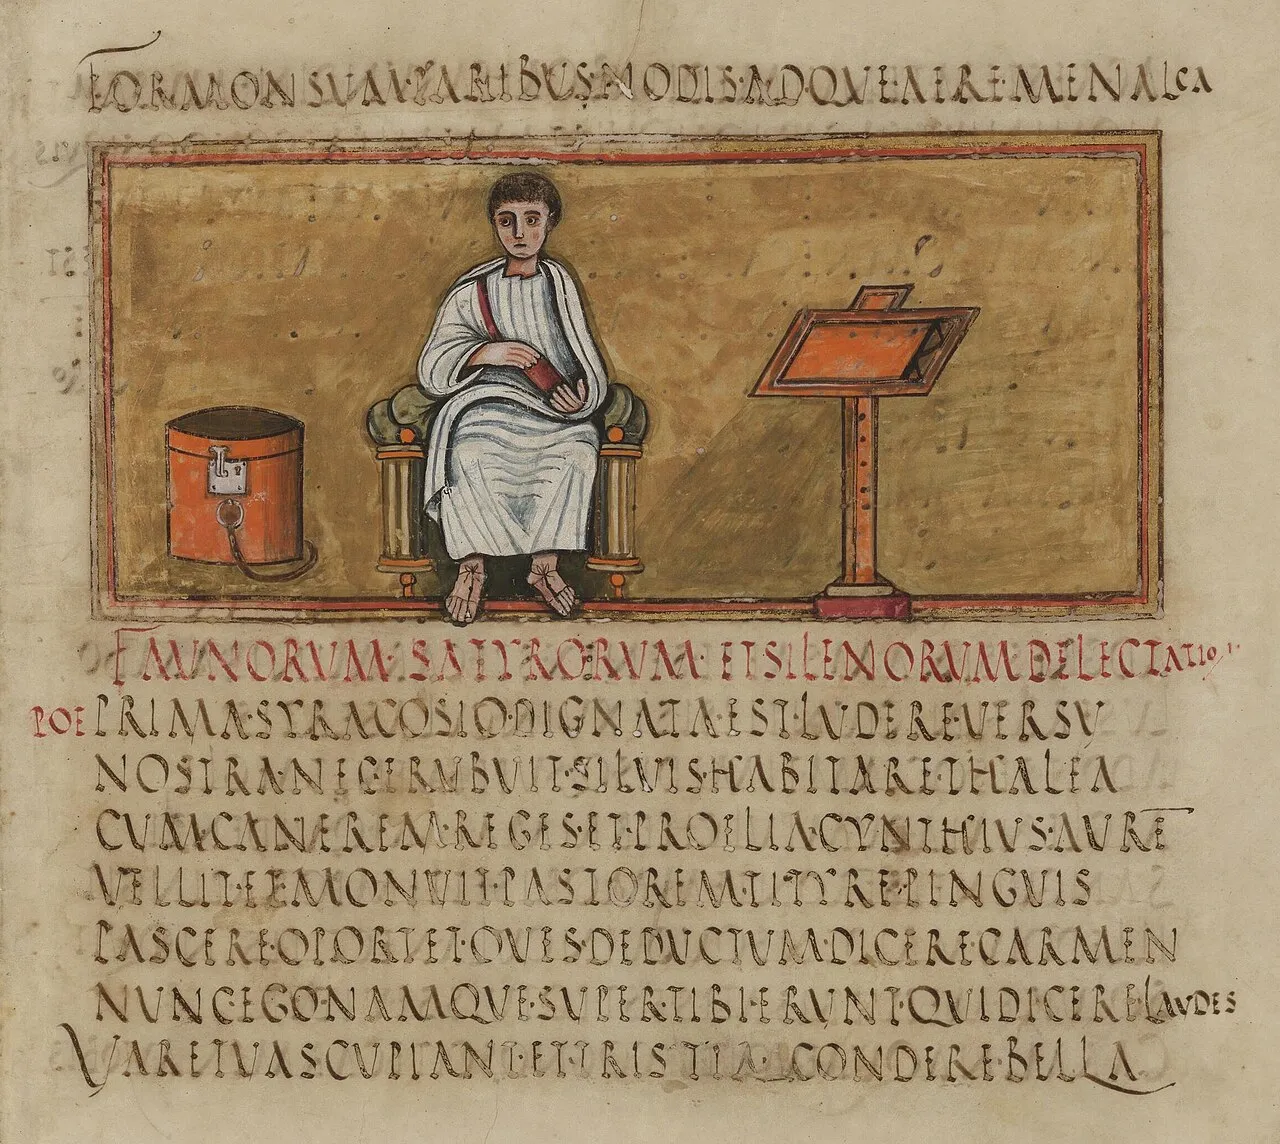 FORMONSVM·PARIBVS·NODIS·ADQVE·AERE·MENALCA
FAVNORVM·SATYRORVM·ET SILENORVM DELECTATIO
POE PRIMA·SYRACOSIO·DIGNATA·EST·LVDERE·VERSV
NOSTRA·NEC·ERVBVIT·SILVIS·HABITARE·THALEA
CVM·CANEREM·REGES·ET·PROELIA·CYNTHIVS·AVRE
VELLIT·ET·MONVIT·PASTOREM·TITYRE·PINGVIS
PASCERE·OPORTET·OVES·DEDVCTVM·DICERE·CARMEN
NVNC·EGO·NAMQVE·SVPER·TIBI·ERVNT·QVI DICERE·LAVDES
VARE TVAS CVPIANT·ET·TRISTIA·CONDERE·BELLA